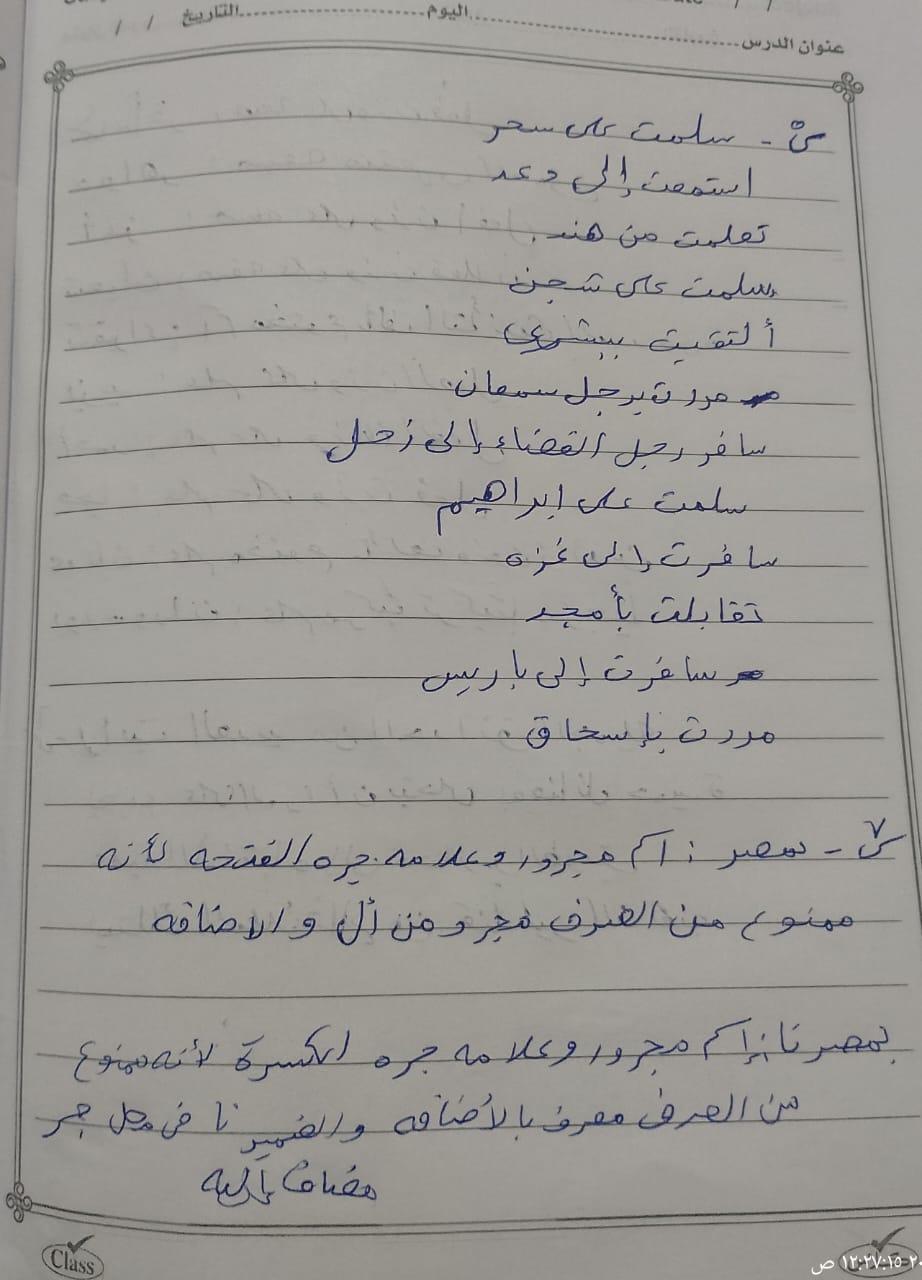 اليوم التاريخ / /
عنوان الدرس
س٦ - سلمت على سحر
استمعت إلى دعد
تعلمت من هند.
سلمت على شجن
ألتقيت ببشرى
مررت برجل سمعان.
سافر رجل القضاء إلى زحل
سلمت على ابراهيم
سافرت إلى غزه
تقابلت بأمجد
سافرت إلى باريس
مررت بإسحاق
س٧ - بمصر : اسم مجرور وعلامه جره الفتحه لأنه
ممنوع من الصرف مجرد من أل والاضافه
بمصرنا : اسم مجرور وعلامه جره الكسرة لأنه ممنوع
من الصرف معرف بالأضافه والضمير نا في محل جر
مضاف إليه
Class
١٢:٢٧:١٥ ص